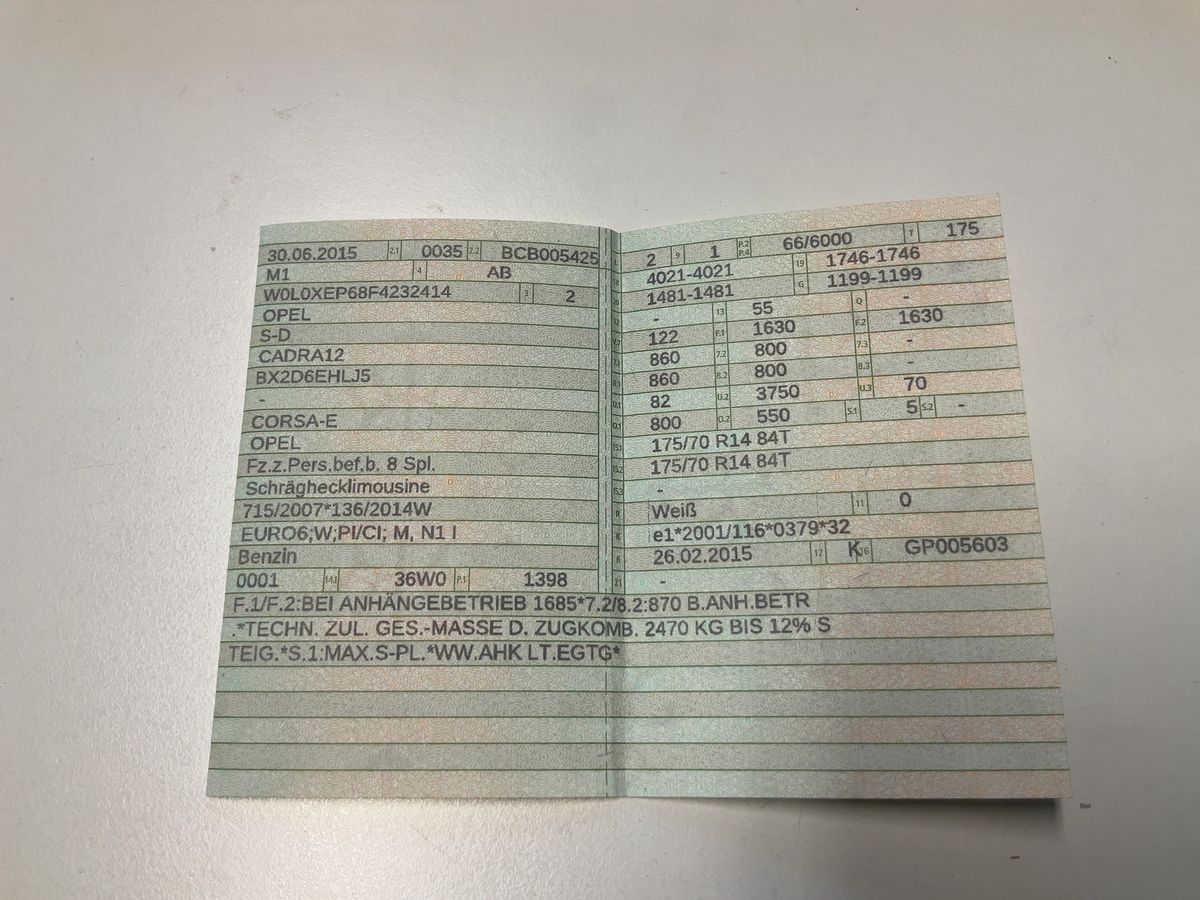 30.06.2015 2.1 0035 2.2 BCB005425
M1 4 AB
W0L0XEP68F4232414 3 2
OPEL
S-D
CADRA12
BX2D6EHLJ5
-
CORSA-E
OPEL
Fz.z.Pers.bef.b. 8 Spl.
Schräghecklimousine
715/2007*136/2014W
EURO6;W;PI/CI; M, N1 I
Benzin
0001 14.1 36W0 P.1 1398
2 9 1 P.2 P.4 66/6000 T 175
4021-4021 19 1746-1746
20 1481-1481 G 1199-1199
12 - 13 55 Q -
V.7 122 F.1 1630 F.2 1630
7.1 860 7.2 800 7.3 -
8.1 860 8.2 800 8.3 -
U.1 82 U.2 3750 U.3 70
O.1 800 O.2 550 S.1 5 S.2 -
15.1 175/70 R14 84T
15.2 175/70 R14 84T
15.3 -
R Weiß 11 0
K e1*2001/116*0379*32
6 26.02.2015 17 K 16 GP005603
21 -
F.1/F.2:BEI ANHÄNGEBETRIEB 1685*7.2/8.2:870 B.ANH.BETR
.*TECHN. ZUL. GES.-MASSE D. ZUGKOMB. 2470 KG BIS 12% S
TEIG.*S.1:MAX.S-PL.*WW.AHK LT.EGTG*